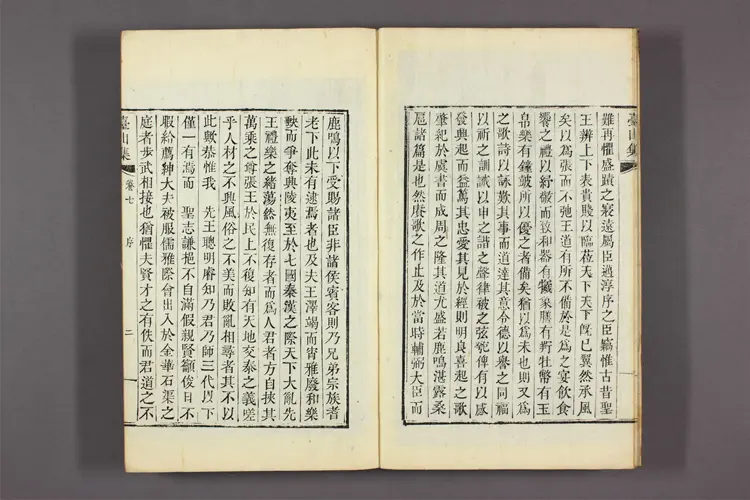 難再懼盛蹟之寢遠屬臣過淳序之臣竊惟古昔聖
王辨上下表貴賤以臨莅天下天下旣已翼然承風
矣以爲張而不弛王道有所不備於是爲之宴飮食
饗之禮以紓嚴而致和器有犧象牲有騂牡幣有玉
帛樂有鐘鼓所以優之者備矣猶以爲未也則又爲
之歌詩以詠歎其事而道達其意令德以譽之同福
以祈之訓誡以申之諧之聲律被之弦匏俾有以感
發興起而益篤其忠愛其見於經則明良喜起之歌
肇紀於虞書而成周之隆其道尤盛若鹿鳴湛露桑
扈諸篇是也然賡歌之作止及於當時輔弼大臣而
臺山集
鹿鳴以下受賜諸臣非諸侯賓客則乃兄弟宗族耆
老下此未有逮焉者也及夫王澤竭而宵雅廢和樂
缺而爭奪興陵夷至於七國秦漢之際天下大亂先
王禮樂之緖蕩然無復存者而爲人君者方自挾其
萬乘之尊張王於民上不復知有天地交泰之義嗟
乎人材之不興風俗之不美而敗亂相尋者其不以
此歟恭惟我 先王聰明睿知乃君乃師三代以下
僅一有焉而 聖志謙挹不自滿假親賢籲俊日不
暇給薦紳大夫被服儒雅際會出入於金華石渠之
庭者步武相接也猶懼夫賢才之有佚而君道之不
臺山集 卷七 序 二